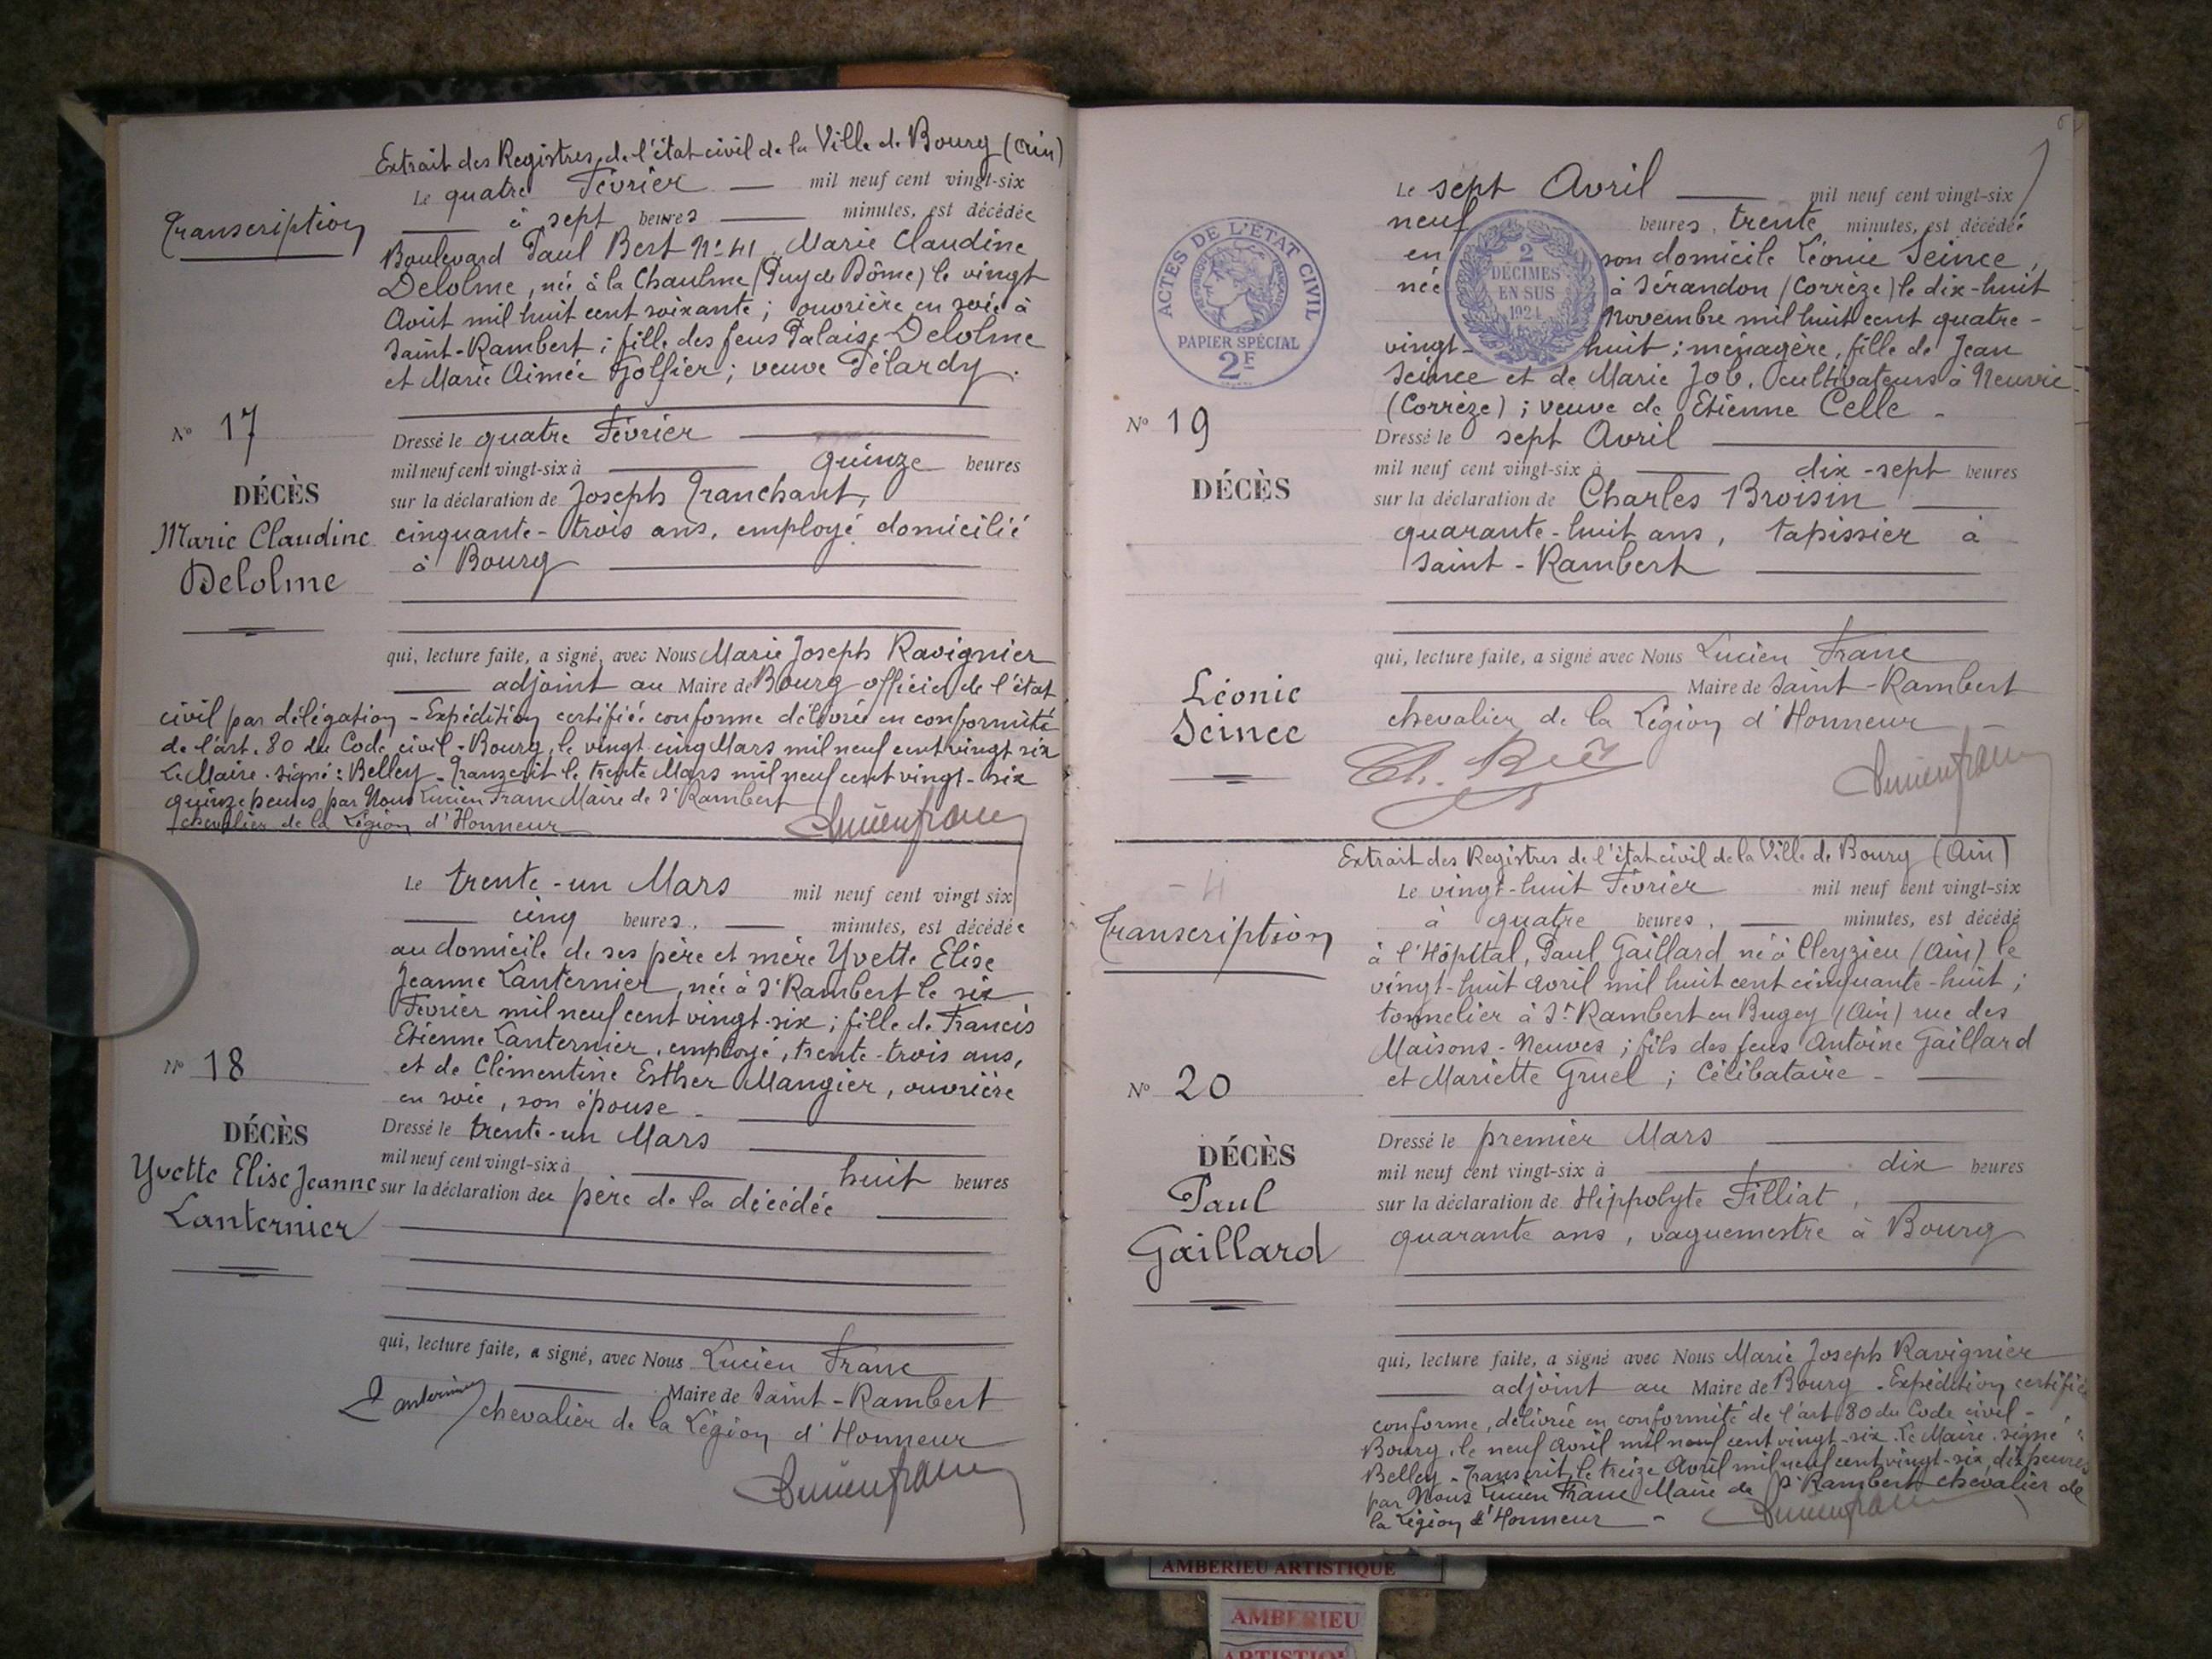 Extrait des Registres de l'état civil de la Ville de Bourg (Ain)
Transcription
Le quatre Février — mil neuf cent vingt-six
— à sept heures — minutes, est décédée
Boulevard Paul Bert N° 41, Marie Claudine
Delolme, née à la Chaulme (Puy de Dôme) le vingt
Août mil huit cent soixante ; ouvrière en soie à
Saint-Rambert ; fille des feus Palaise Delolme
et Marie Aimée Golfier ; veuve Pélardy.
N° 17
DÉCÈS
Marie Claudine
Delolme
Dressé le quatre Février
mil neuf cent vingt-six à — quinze heures
sur la déclaration de Joseph Tranchant,
cinquante-trois ans, employé domicilié
à Bourg
qui, lecture faite, a signé, avec Nous Marie Joseph Ravignier
— adjoint au Maire de Bourg officier de l'état
civil par délégation - Expédition certifiée conforme délivrée en conformité
de l'art. 80 du Code civil - Bourg, le vingt cinq Mars mil neuf cent vingt six
Le Maire. signé : Belley - Transcrit le trente Mars mil neuf cent vingt-six
quinze heures par Nous Lucien Franc Maire de St Rambert
chevalier de la Légion d'Honneur
Lucien franc
Le trente-un Mars mil neuf cent vingt six
— cinq heures, — minutes, est décédée
au domicile de ses père et mère Yvette Elise
Jeanne Lanternier, née à St Rambert le six
Février mil neuf cent vingt-six ; fille de Francis
Etienne Lanternier, employé, trente-trois ans,
et de Clémentine Esther Mangier, ouvrière
en soie, son épouse -
N° 18
DÉCÈS
Yvette Elise Jeanne
Lanternier
Dressé le trente-un Mars
mil neuf cent vingt-six à — huit heures
sur la déclaration du père de la décédée
qui, lecture faite, a signé, avec Nous Lucien Franc
— Maire de Saint-Rambert
chevalier de la Légion d'Honneur
Lanternier
Lucien franc
Le sept Avril — mil neuf cent vingt-six
neuf heures, trente minutes, est décédée
en son domicile Léonie Seince,
née à Sérandon (Corrèze) le dix-huit
Novembre mil huit cent quatre-
vingt-huit ; ménagère, fille de Jean
Seince et de Marie Job, cultivateurs à Neuvic
(Corrèze) ; veuve de Etienne Celle -
ACTES DE L'ÉTAT CIVIL
PAPIER SPÉCIAL
2F
2
DÉCIMES
EN SUS
1924
N° 19
DÉCÈS
Léonie
Seince
Dressé le sept Avril
mil neuf cent vingt-six à — dix-sept heures
sur la déclaration de Charles Broisin
quarante-huit ans, tapissier à
Saint-Rambert
qui, lecture faite, a signé avec Nous Lucien Franc
— Maire de Saint-Rambert
chevalier de la Légion d'Honneur -
Lucien franc
Extrait des Registres de l'état civil de la Ville de Bourg (Ain)
Transcription
Le vingt-huit Février mil neuf cent vingt-six
à quatre heures, — minutes, est décédé
à l'Hôpital, Paul Gaillard né à Cleyzieu (Ain) le
vingt-huit avril mil huit cent cinquante-huit ;
tonnelier à St Rambert en Bugey (Ain) rue des
Maisons-Neuves ; fils des feus Antoine Gaillard
et Mariette Gruel ; Célibataire -
N° 20
DÉCÈS
Paul
Gaillard
Dressé le premier Mars
mil neuf cent vingt-six à — dix heures
sur la déclaration de Hippolyte Filliat,
quarante ans, vaguemestre à Bourg
qui, lecture faite, a signé avec Nous Marie Joseph Ravignier
— adjoint au Maire de Bourg - Expédition certifiée
conforme, délivrée en conformité de l'art 80 du Code civil -
Bourg, le neuf avril mil neuf cent vingt-six. Le Maire. signé :
Belley - Transcrit, le treize Avril mil neuf cent vingt-six, dix heures
par Nous Lucien Franc Maire de St Rambert chevalier de
la Légion d'Honneur -
Lucien franc
AMBERIEU ARTISTIQUE
AMBERIEU
ARTISTIQUE